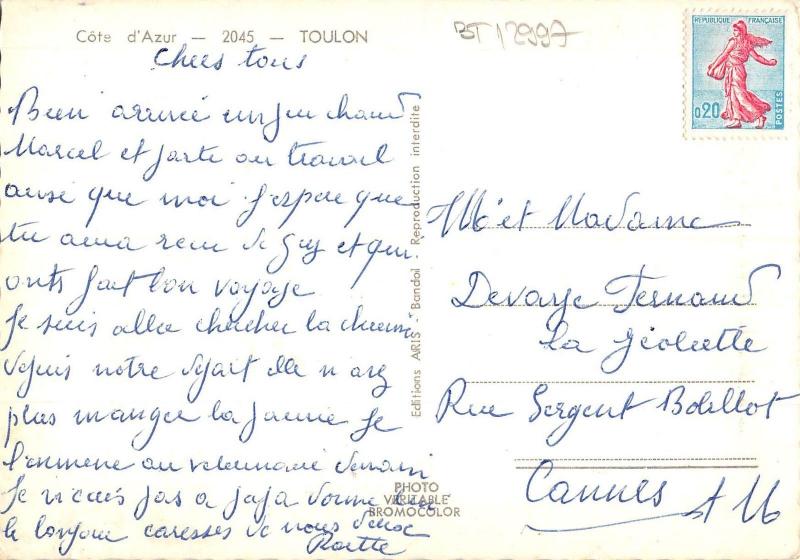 Côte d'Azur — 2045 — TOULON
BT 12997
Chers tous
Bien arrivé un peu chaud
Marcel et parte au travail
ainsi que moi J'espère que
tu aura reçu de Guy et qui
onts fait bon voyage
Je suis allé chercher la
depuis notre depart elle n'ary
plus manger la Je
l'emmene au veterinaire demain
Je n'ecris pas a papa donne
le bonjour caresses de nous deux
REPUBLIQUE FRANÇAISE
0,20
POSTES
Mr et Madame
Fernand
La
Rue Sergent Bobillot
Cannes A M
Editions ARIS - Bandol Reproduction interdite
PHOTO
VÉRITABLE
BROMOCOLOR